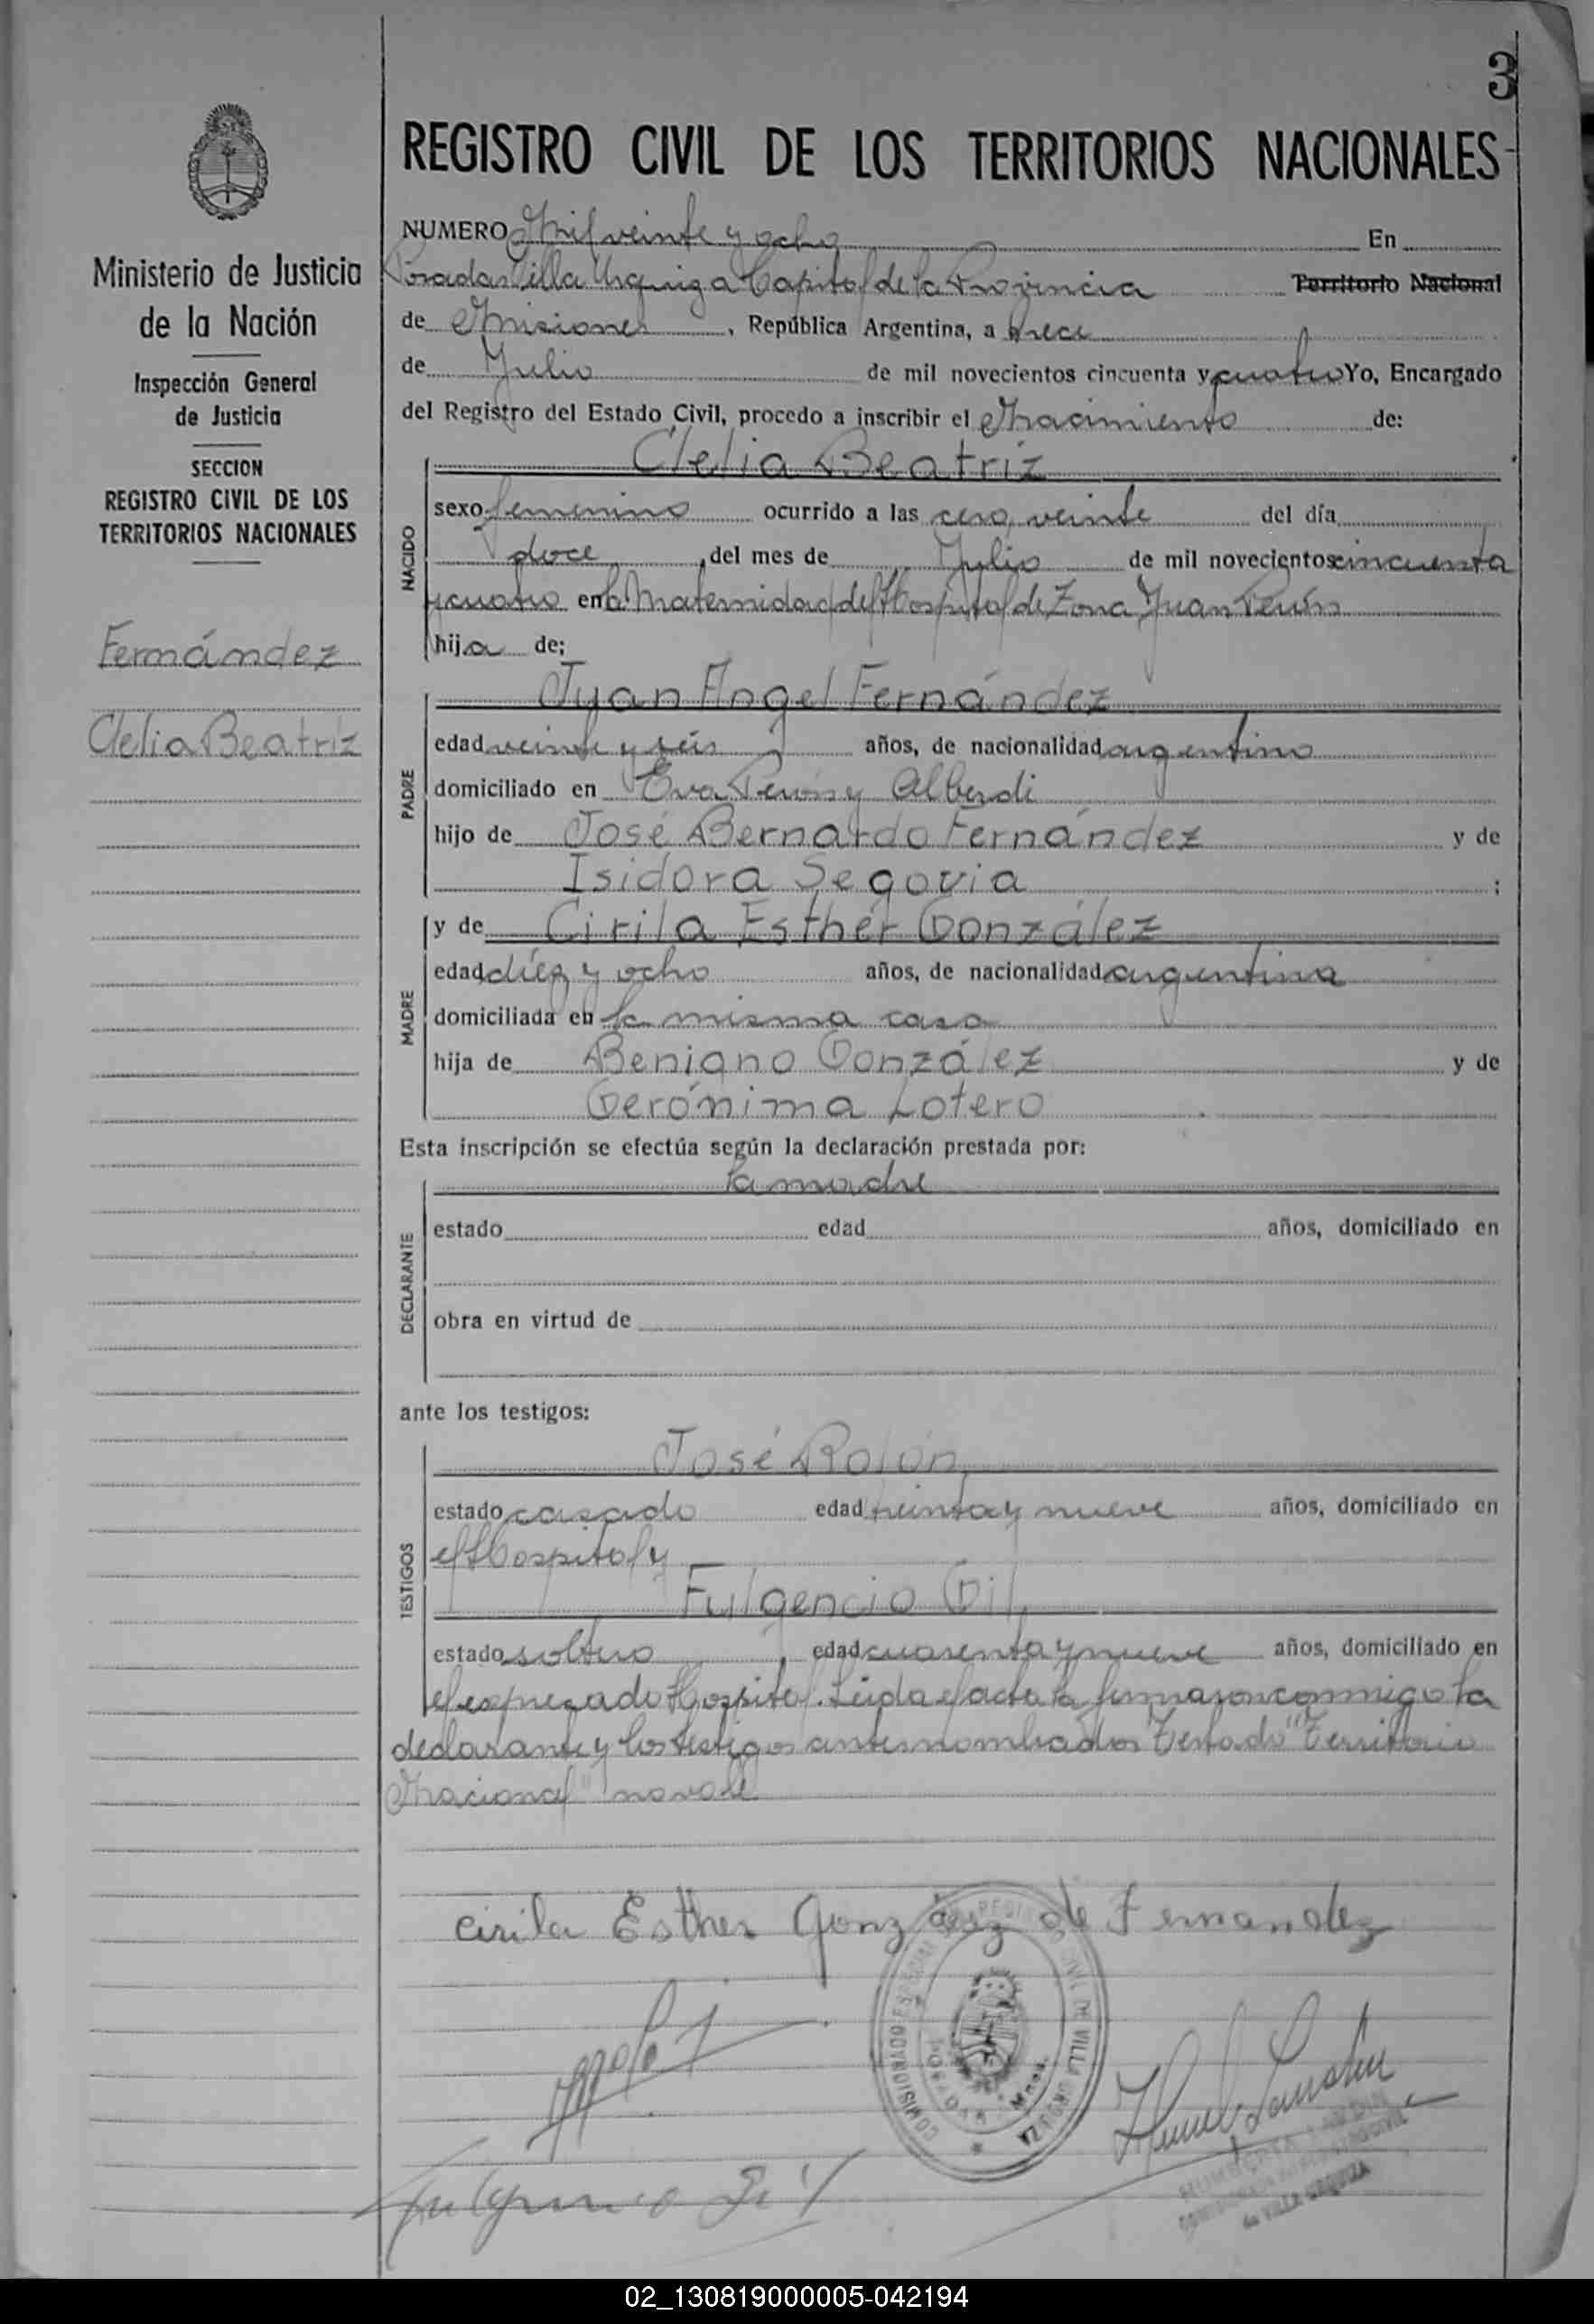 3
REGISTRO CIVIL DE LOS TERRITORIOS NACIONALES
Ministerio de Justicia
de la Nación
Inspección General
de Justicia
SECCION
REGISTRO CIVIL DE LOS
TERRITORIOS NACIONALES
Fernández
Clelia Beatriz
NUMERO Mil veinte y ocho En
Posadas Villa Urquiza Capital de la Provincia Territorio Nacional
de Misiones, República Argentina, a trece
de Julio de mil novecientos cincuenta y cuatro Yo, Encargado
del Registro del Estado Civil, procedo a inscribir el Nacimiento de:
NACIDO
Clelia Beatriz
sexo femenino ocurrido a las cero, veinte del día
doce, del mes de Julio de mil novecientos cincuenta
y cuatro en la Maternidad del Hospital de Zona Juan Perón
hija de;
PADRE
Juan Angel Fernández
edad veinte y seis años, de nacionalidad argentino
domiciliado en Eva Perón y Alberdi
hijo de José Bernardo Fernández y de
Isidora Segovia ;
MADRE
y de Cirila Esthér González
edad diez y ocho años, de nacionalidad argentina
domiciliada en la misma casa
hija de Benigno González y de
Gerónima Lotero
Esta inscripción se efectúa según la declaración prestada por:
DECLARANTE
la madre
estado edad años, domiciliado en
obra en virtud de
ante los testigos:
TESTIGOS
José Rolón,
estado casado edad treinta y nueve años, domiciliado en
el Hospital y
Fulgencio Gil,
estado soltero, edad cuarenta y nueve años, domiciliado en
el expresado Hospital. Leida el acta la firmaron conmigo la
declarante y los testigos antes nombrados Testado "Territorio
Nacional" no vale
Cirila Esther Gonzalez de Fernandez
Fulgencio Gil
DE VILLA URQUIZA
02_130819000005-042194